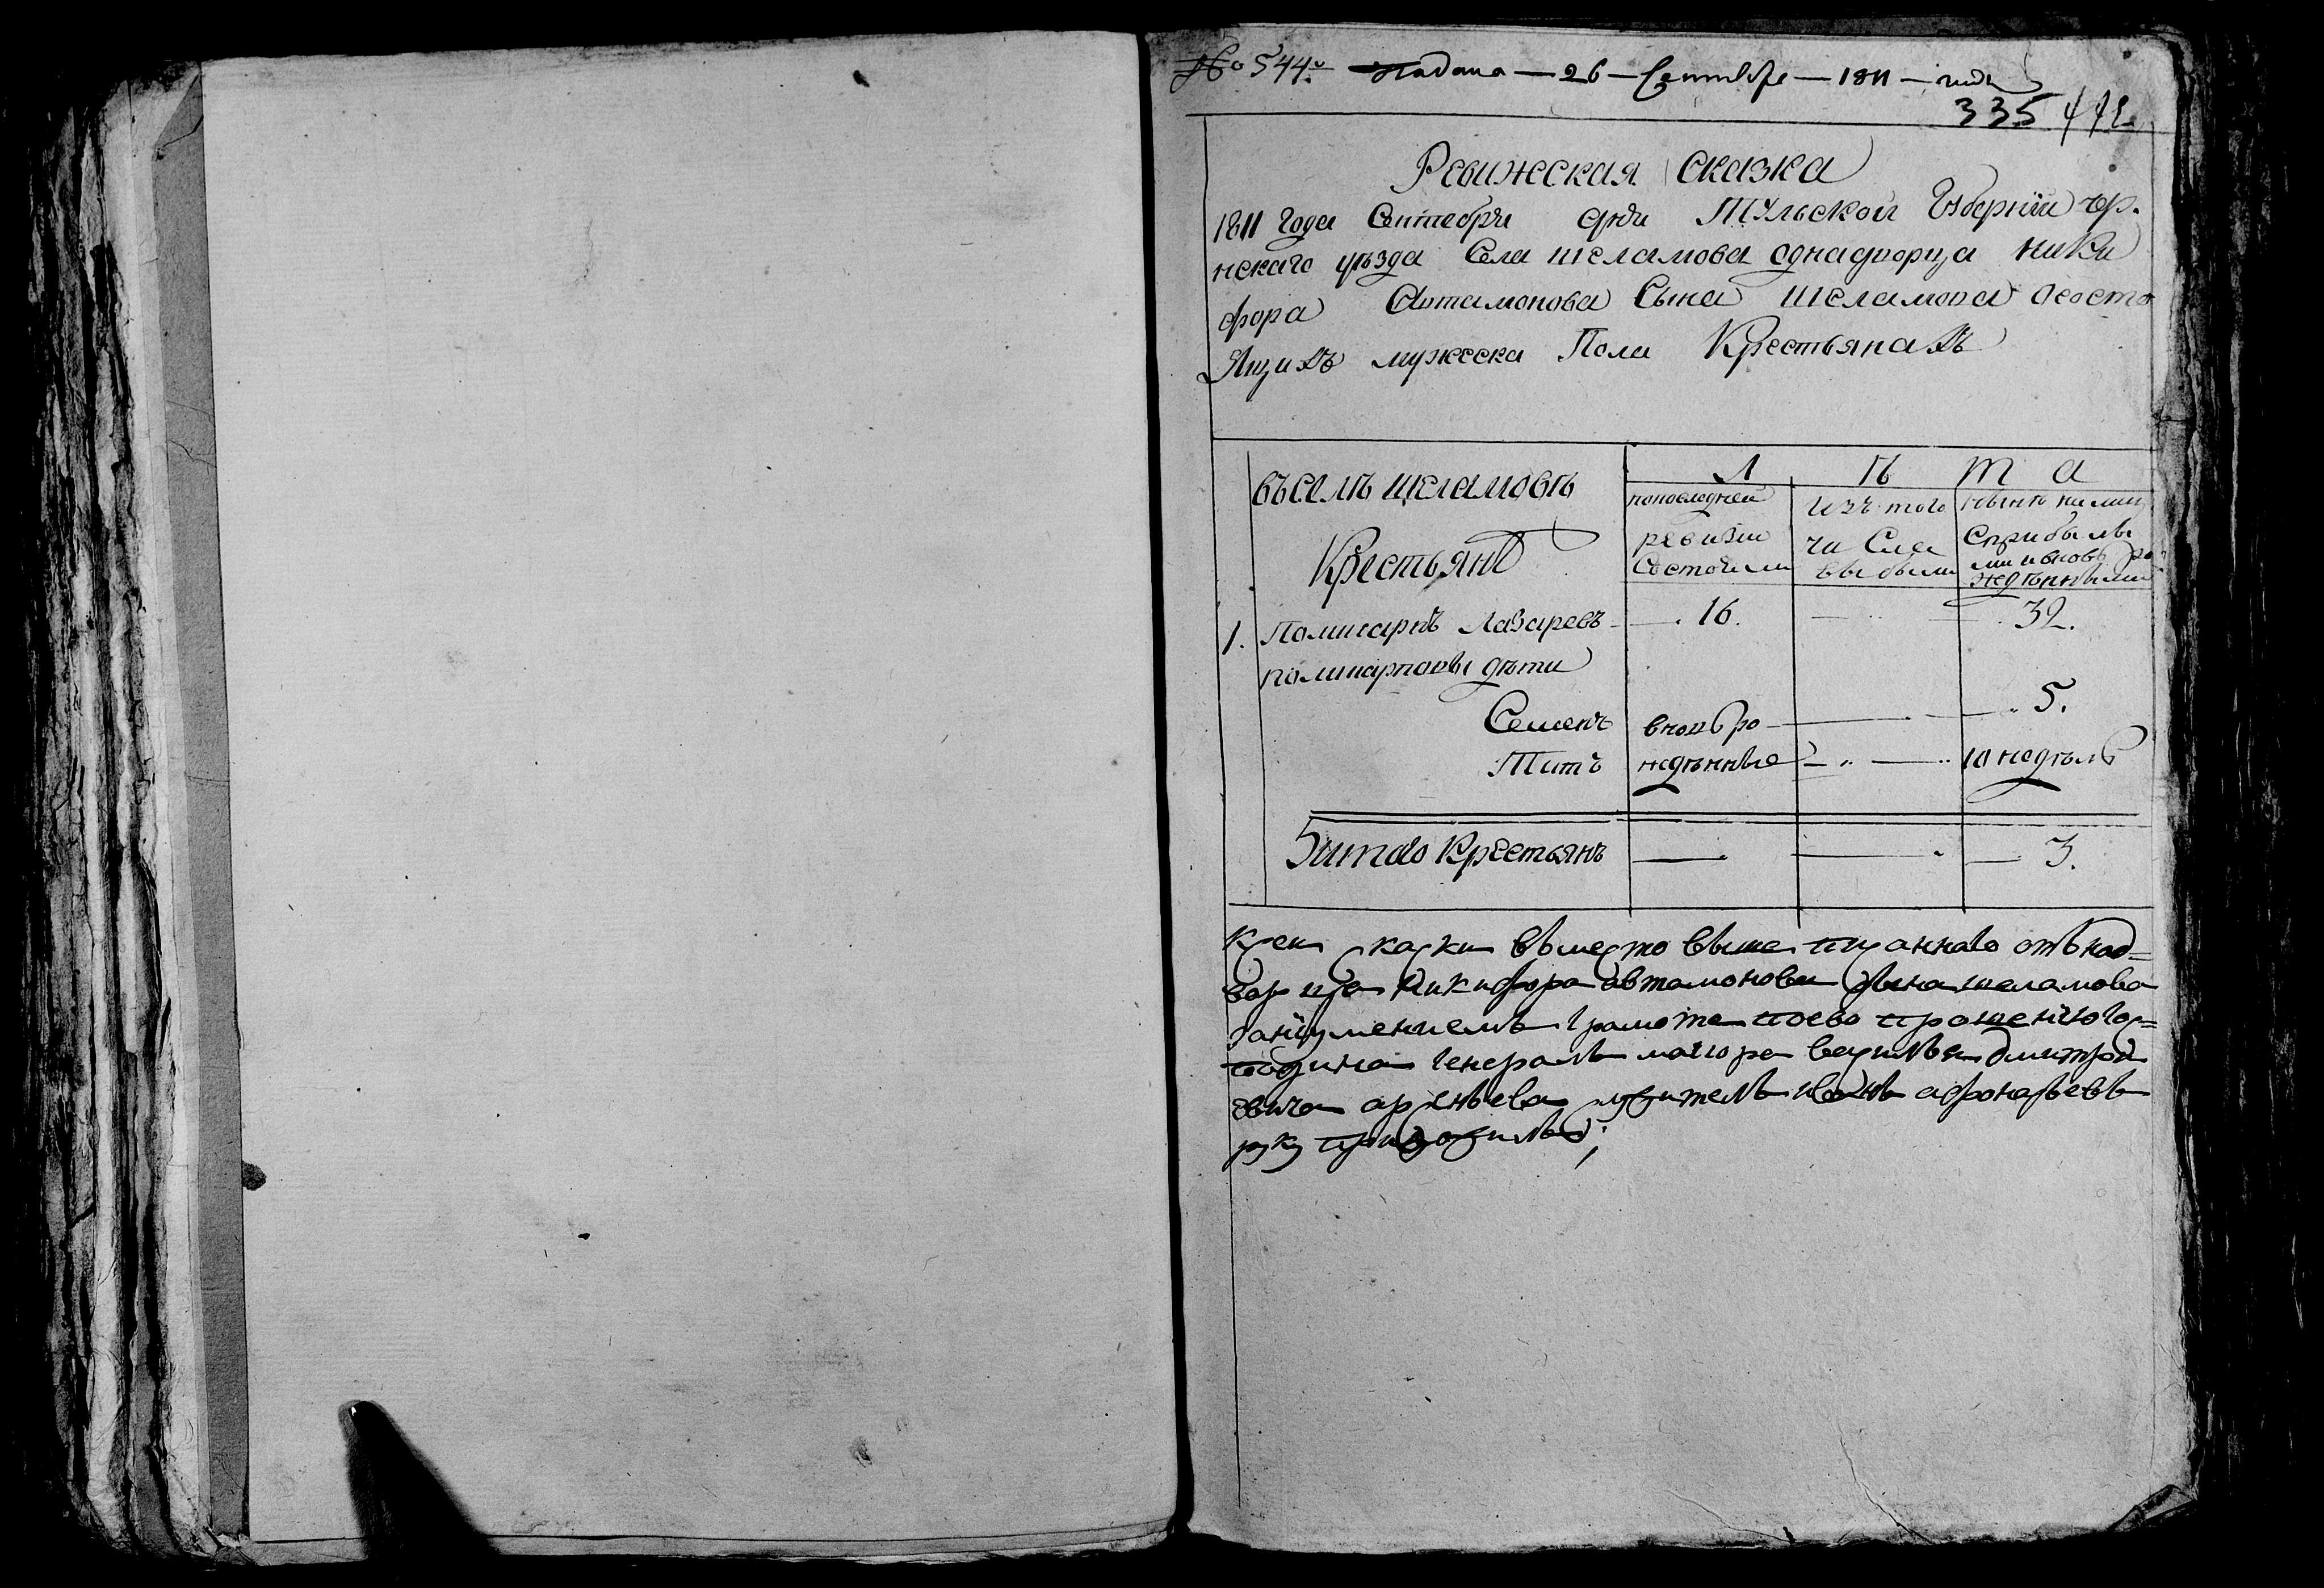 № 544й Подана — 26 — Сентебре — 1811 — года
335 442
Ревижская сказка
1811 Года Сентебря дня Тульской Губернии чер-
нскаго уезда Села шеламова однадворца ники
фора Автамонова Сына шеламова ососто
Ящихъ мужеска Пола Крестьянахъ
въселѣ шеламовѣ
Л ѣ т а
Крестьянъ
попоследней ревизии Состояли
изъ того числа выбыли
нынѣ налицо Сприбылыми ивновь рожденными
1. Поликарпъ Лазаревъ 16. 32.
поликарповы дѣти
Семенъ вновь ро 5.
Титъ жденные 10 недѣль
Итого Крестьянъ 3.
Ксеи скаски вместо выше писаннаго отънад=
ворца Никифора автамонова сына шеламова
занеумениемъ Грамоте поево прошению гос=
подина Генералъ маиора василья дмитрои
евича арсеньева служитель иванъ афонасьевъ
руку приложилъ;